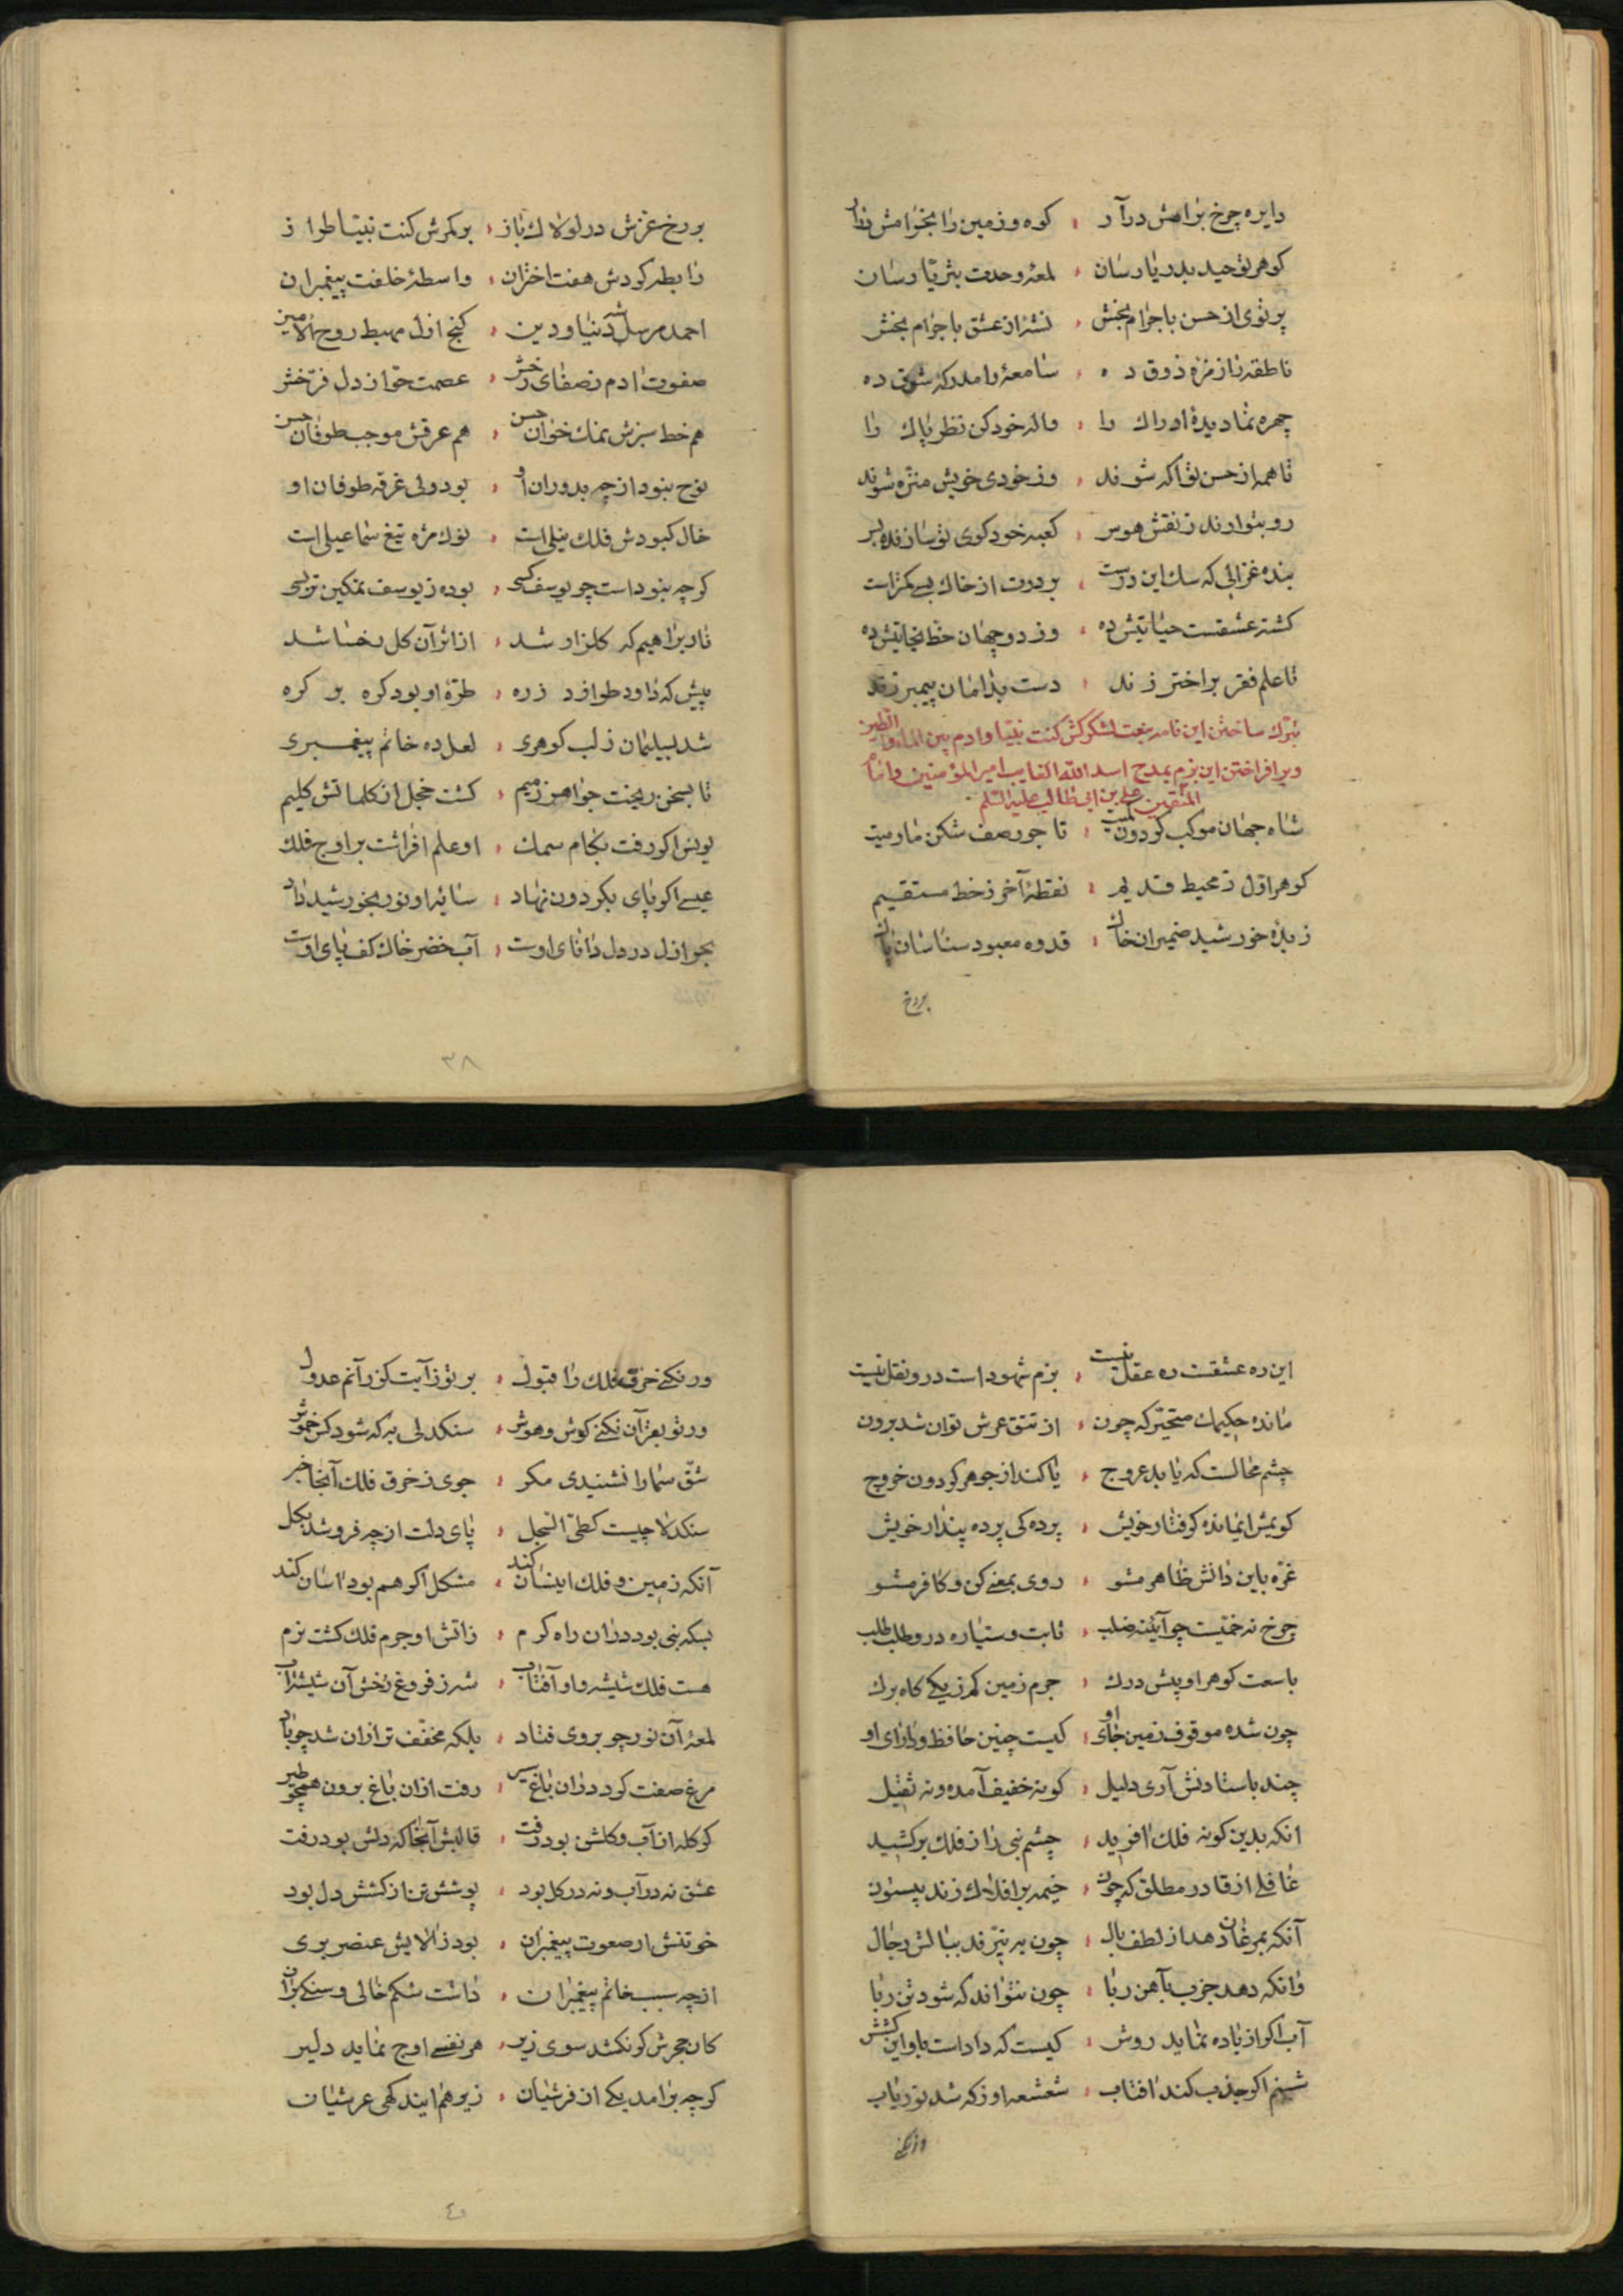 دایره چرخ براهش درآر ، کوه و زمین را بخرامش
کوهر توحید بدریا رسان ، لمعهٔ وحدت بثریا رسان
پرتوی از حسن باجرام بخش ، نشئز از عشق باجرام بخش
ناطقه را زمزمه ذوق ده ، سامعه را مدرکه شوق ده
چهره نما دیدهٔ ادراک را ، واله خود کن نظر پاک را
تا همه از حسن تو آکه شوند ، وز خودی خویش منزه شوند
رو بتو ارند ز نقش هوس ، کعبه خود کوی تو سازند و بس
بنده غزالی که سک این درست ، بر درت از خاک بسی کمتر است
کشته عشقست حیاتیش ده ، وز دو جهان خط نجاتیش ده
تا علم فقر بر اختر زند ، دست بدامان پیمبر زند
تبرک ساختن این نامه بنعت لشکرکش کنت نبیا و ادم بین الماء والطین
وبر افراختن این بزم بمدح اسد الله الغالب امیر المؤمنین و امام
المتقین علی بن ابی طالب علیه السلم
شاه جهان موکب کردون کمیت ، تاجور صف شکن مارمیت
کوهر اول ز محیط قدیم ، نقطهٔ آخر ز خط مستقیم
زبدهٔ خورشید ضمیران خاک ، قدوه معبود شناسان پاک
بر رخ
بر رخ عزش در لولاک باز ، بر کمرش کنت نبیا طراز
رابطه کردش هفت اختران ، واسطهٔ خلقت پیغمبران
احمد مرسل شه دنیا و دین ، کنج ازل مهبط روح الامین
صفوت ادم ز صفای رخش ، عصمت حوا ز دل فرخش
هم خط سبزش نمک خوان حسن ، هم عرقش موجب طوفان حسن
نوح نبود ار چه بدوران او ، بود ولی غرقه طوفان او
خال کبودش فلک نیلی است ، نوک مژه تیغ سماعیلی است
کرچه نبود است چو یوسف کسی ، بوده ز یوسف نمکین تر بسی
نار براهیم که کلزار شد ، از اثر آن کل رخسا شد
پیش که داود طرازد زره ، طرهٔ او بود کره بر کره
شد بسلیمان ز لب کوهری ، لعل ده خاتم پیغمبری
تا بسخن ریخت جواهر ز میم ، کشت خجل از کلماتش کلیم
یونس اکر رفت بکام سمک ، او علم افراشت بر اوج فلک
عیسی اکر پای بکردون نهاد ، سایهٔ او نور بخورشید داد
بحر ازل در دل دانای اوست ، آب خضر خاک کف پای اوست
٣٨
این ره عشقست ره عقل نیست ، بزم شهود است درو نقل نیست
مانده حکیمک متحیر که چون ، از تتق عرش توان شد برون
چشم محالست که یابد عروج ، یا کند از جوهر کردون خروج
کویمش ای مانده کرفتار خویش ، پرده کی پرده پندار خویش
غره باین دانش ظاهر مشو ، روی بمعنی کن و کافر مشو
چرخ نه ختیست چو آیینه صلب ، ثابت و سیاره درو طلب طلب
با سعت کوهر او پیش درک ، جرم زمین کم ز یکی کاه برک
چون شده موقوف زمین جای او ، کیست چنین حافظ و دارای او
چند باستادنش آری دلیل ، کو نه خفیف آمده و نه ثقیل
انکه بدین کونه فلک افرید ، چشم نبی را ز فلک برکشید
غافلی از قادر مطلق که چون ، خیمه بر افلاک زند بیستون
آنکه بمرغان دهد از لطف بال ، چون به نپرند ببالش رجال
وانکه دهد جزب بآهن ربا ، چون نتواند که شود تن ربا
آب اکر از باده نماید روش ، کیست که داداست باو این کشش
شبنم اکر جذب کند افتاب ، شعشعه او ز که شد نور یاب
ور نکنی
ور نکنی خرق فلک را قبول ، بر تو ز آیت کنم رآنم عدول
ور تو بقرآن نکنی کوش و هوش ، سنکدلی به که شود کس خموش
شق سما را نشنیدی مکر ، جوی ز خرق فلک آنجا خبر
سنکدلا چیست کطی السجل ، پای دلت از چه فرو شد بکل
آنکه زمین و فلک اینسان کند ، مشکل اکر هم بود اسان کند
بسکه نبی بود دران راه کرم ، زاتش او جرم فلک کشت نرم
هست فلک شیشه و او آفتاب ، شد ز فروغ رخش آن شیشه آب
لمعهٔ آن نور چو بروی فتاد ، بلکه مخفف تر ازان شد چو باد
مرغ صفت کرد دران باغ سیر ، رفت ازان باغ برون همچو طیر
کو کله از آب و کلش بود رفت ، قالبش آنجا که دلش بود رفت
عشق نه در آب و نه در کل بود ، پوشش تن از کشش دل بود
خو تنش ار صعوت پیغمبران ، بود ز الایش عنصر بری
از چه سبب خاتم پیغمبران ، داشت شکم خالی و سنکی بران
کان حجرش کر نکشد سوی زیر ، هر نفسی اوج نماید دلیر
کرچه برامد یکی از فرشیان ، زیر هم ایند کهی عرشیان
٤٠